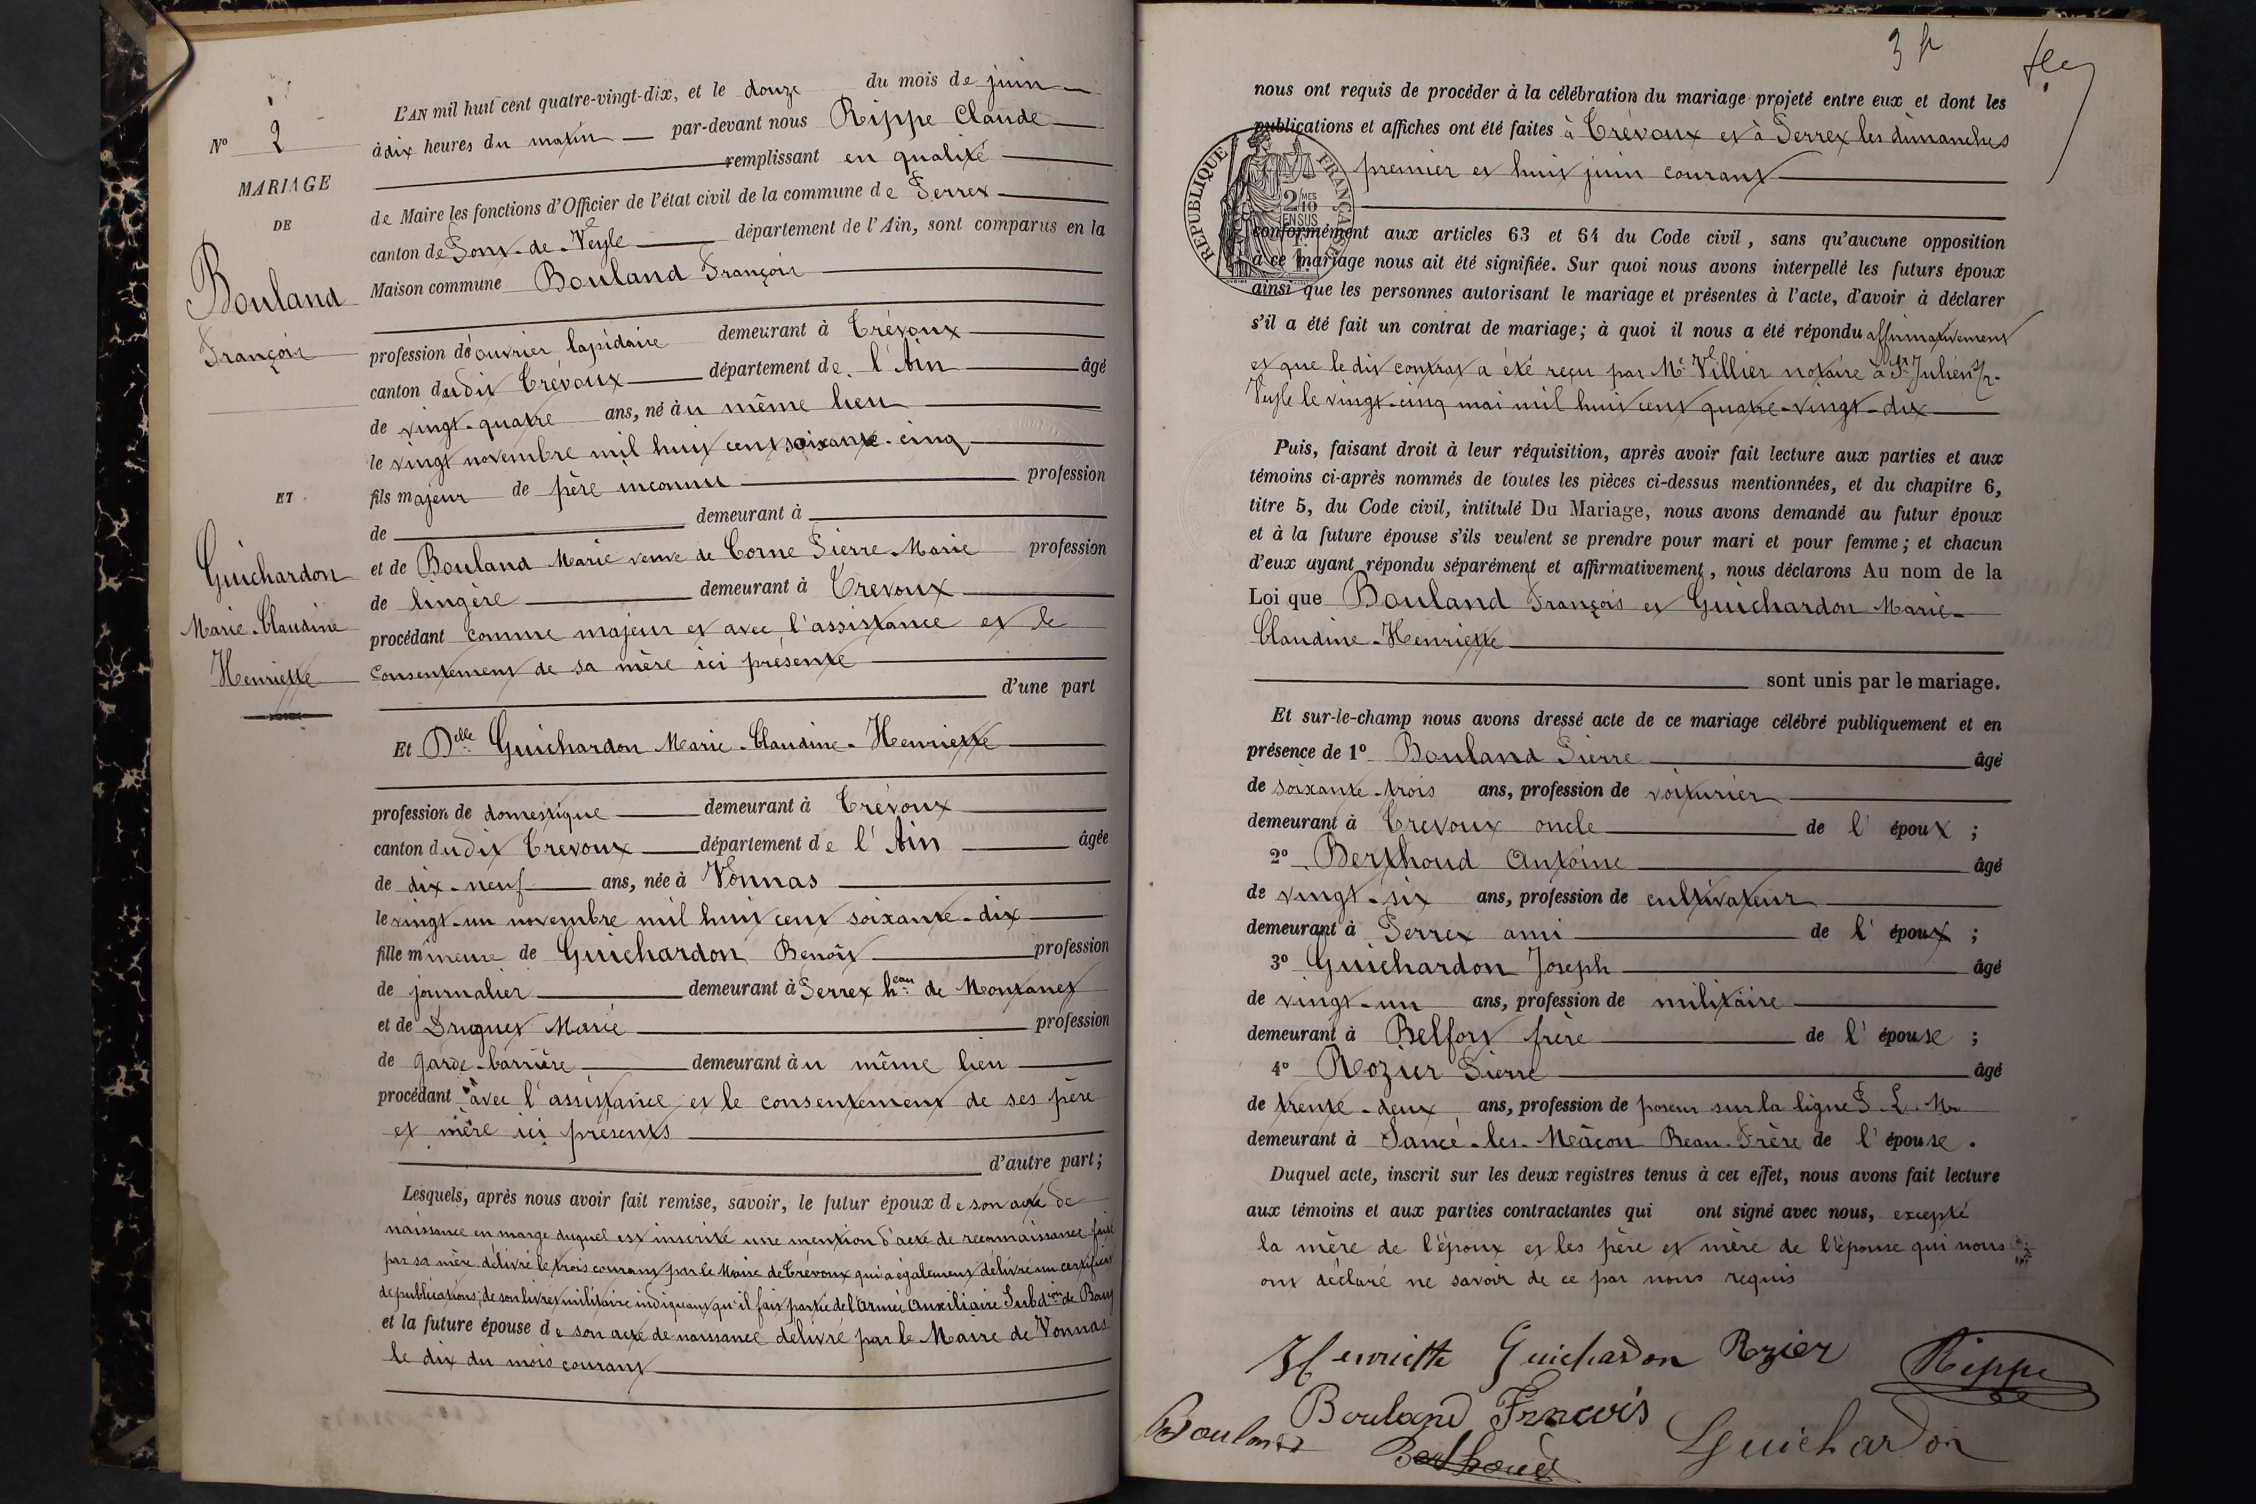 N° 2
MARIAGE
DE
Bouland
François
ET
Guichardon
Marie-Claudine
Henriette
L'AN mil huit cent quatre-vingt-dix, et le douze du mois de juin
à dix heures du matin par-devant nous Rippe Claude
remplissant en qualité
de Maire les fonctions d'Officier de l'état civil de la commune de Perrex
canton de Pont-de-Veyle département de l'Ain, sont comparus en la
Maison commune Bouland François
profession d'ouvrier lapidaire demeurant à Trévoux
canton dudit Trévoux département de l'Ain âgé
de vingt-quatre ans, né au même lieu
le vingt novembre mil huit cent soixante-cinq
fils majeur de père inconnu profession
de demeurant à
et de Bouland Marie veuve de Corne Pierre-Marie profession
de lingère demeurant à Trevoux
procédant comme majeur et avec l'assistance et le
consentement de sa mère ici présente
d'une part
Et Delle Guichardon Marie-Claudine-Henriette
profession de domestique demeurant à Trévoux
canton dudit Trevoux département de l'Ain âgée
de dix-neuf ans, née à Vonnas
le vingt-un novembre mil huit cent soixante-dix
fille mineure de Guichardon Benoît profession
de journalier demeurant à Perrex heau de Montanet
et de Druguet Marie profession
de garde-barrière demeurant au même lieu
procédant avec l'assistance et le consentement de ses père
et mère ici présents
d'autre part;
Lesquels, après nous avoir fait remise, savoir, le futur époux de son acte de
naissance en marge duquel est inscrite une mention d'acte de reconnaissance faite
par sa mère délivré le trois courant par le Maire de Trévoux qui a également délivré un certificat
de publications; de son livret militaire indiquant qu'il fait partie de l'armée Auxiliaire Subdion de Bourg
et la future épouse de son acte de naissance délivré par le Maire de Vonnas
le dix du mois courant
3
nous ont requis de procéder à la célébration du mariage projeté entre eux et dont les
publications et affiches ont été faites à Trévoux et à Perrex les dimanches
premier et huit juin courant
RÉPUBLIQUE FRANÇAISE
2/10 MES
EN SUS
conformément aux articles 63 et 64 du Code civil, sans qu'aucune opposition
à ce mariage nous ait été signifiée. Sur quoi nous avons interpellé les futurs époux
ainsi que les personnes autorisant le mariage et présentes à l'acte, d'avoir à déclarer
s'il a été fait un contrat de mariage; à quoi il nous a été répondu affirmativement
et que le dit contrat a été reçu par Me Villier notaire à St Julien s/r-
Veyle le vingt-cinq mai mil huit cent quatre-vingt-dix
Puis, faisant droit à leur réquisition, après avoir fait lecture aux parties et aux
témoins ci-après nommés de toutes les pièces ci-dessus mentionnées, et du chapitre 6,
titre 5, du Code civil, intitulé Du Mariage, nous avons demandé au futur époux
et à la future épouse s'ils veulent se prendre pour mari et pour femme; et chacun
d'eux ayant répondu séparément et affirmativement, nous déclarons Au nom de la
Loi que Bouland François et Guichardon Marie-
Claudine-Henriette
sont unis par le mariage.
Et sur-le-champ nous avons dressé acte de ce mariage célébré publiquement et en
présence de 1° Bouland Pierre âgé
de soixante-trois ans, profession de voiturier
demeurant à Trevoux oncle de l'époux;
2° Berthoud Antoine âgé
de vingt-six ans, profession de cultivateur
demeurant à Perrex ami de l'époux;
3° Guichardon Joseph âgé
de vingt-un ans, profession de militaire
demeurant à Belfort frère de l'épouse;
4° Rozier Pierre âgé
de trente-deux ans, profession de poseur sur la ligne P. L. M.
demeurant à Sancé-les-Mâcon Beau-Frère de l'épouse.
Duquel acte, inscrit sur les deux registres tenus à cet effet, nous avons fait lecture
aux témoins et aux parties contractantes qui ont signé avec nous, excepté
la mère de l'époux et les père et mère de l'épouse qui nous
ont déclaré ne savoir de ce par nous requis
Henriette Guichardon Rozier Rippe
Bouland Francois
Bouland Berthoud Guichardon